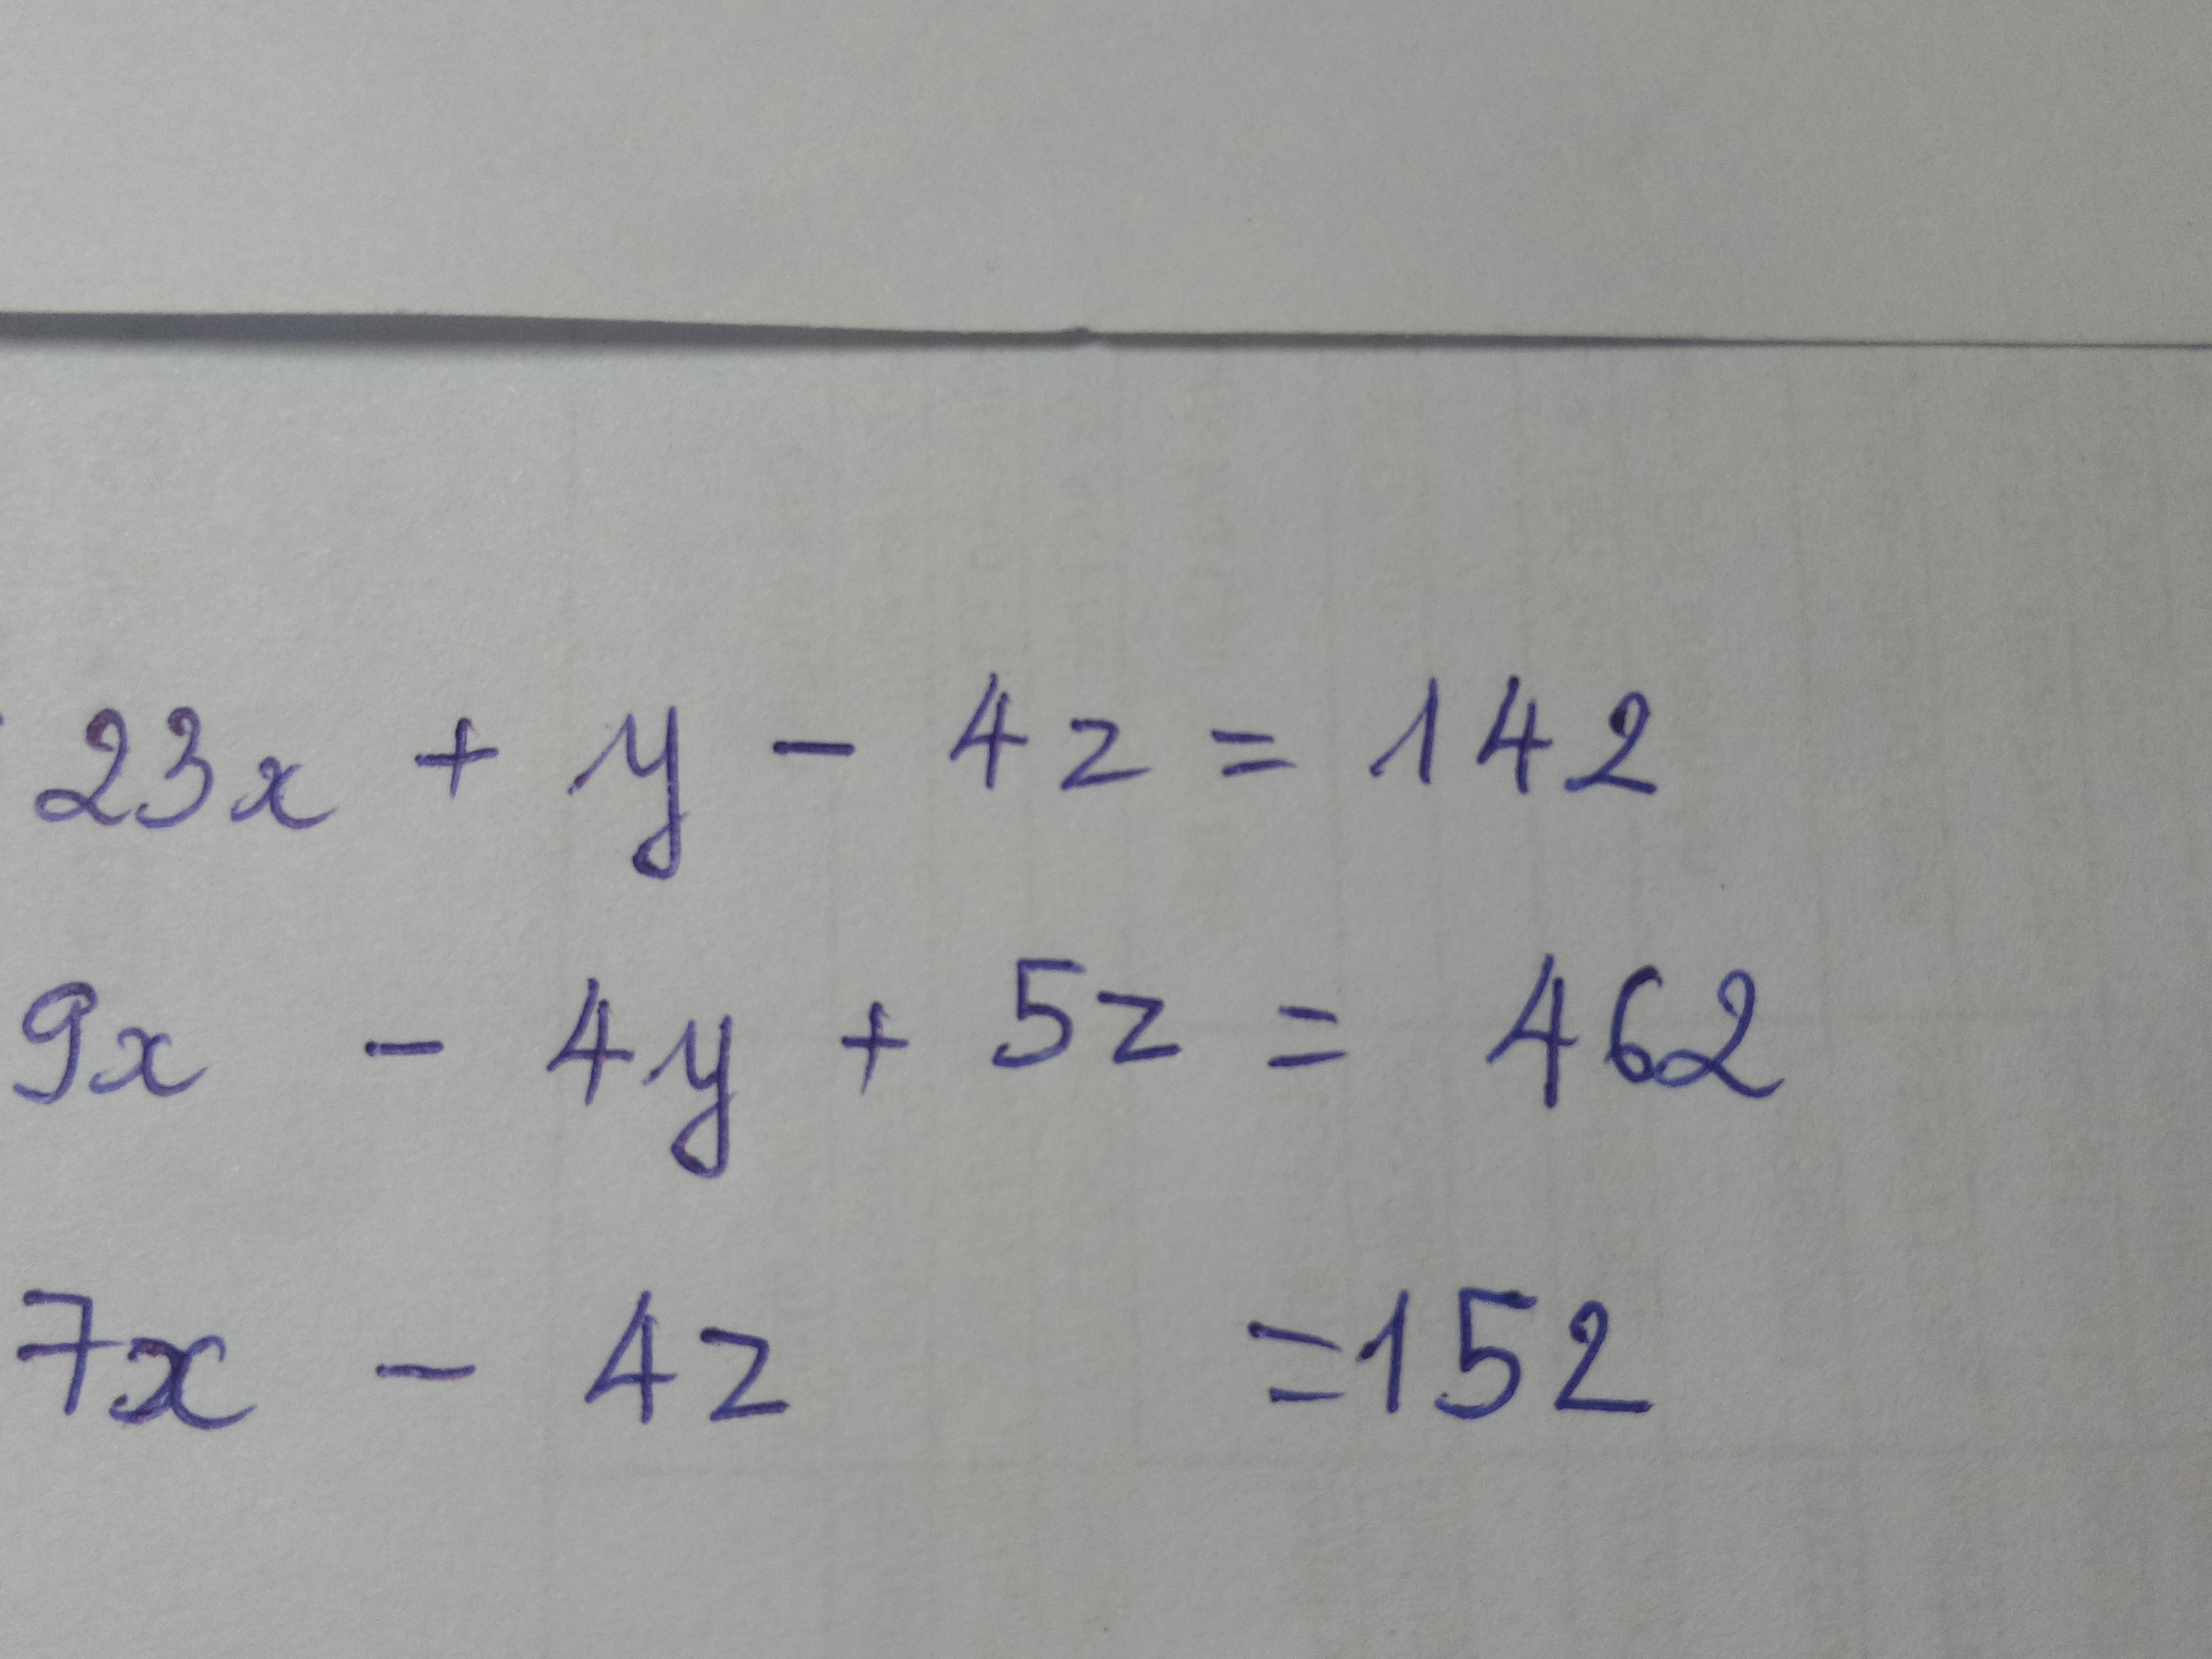 23x + y - 4z = 142
9x - 4y + 5z = 462
7x - 4z = 152